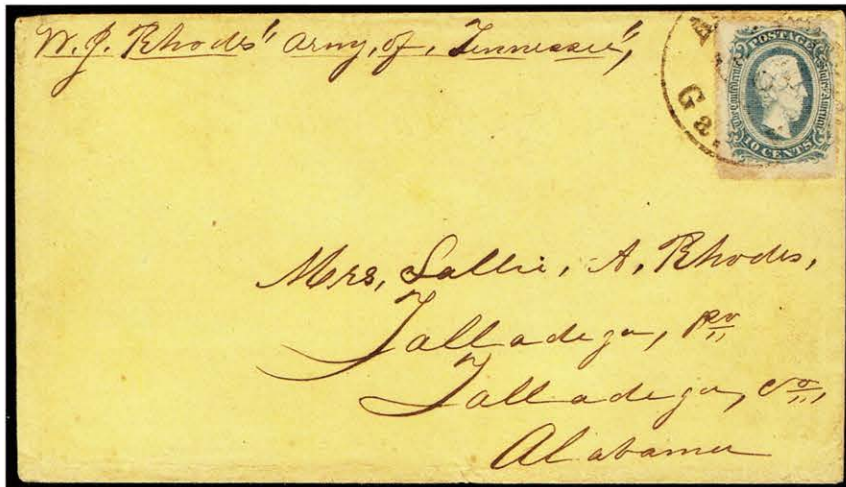 W. J. Rhodes" Army, of, Tennessee",
Ga.
POSTAGE
10 CENTS
Mrs, Sallie, A, Rhodes,
Talladega, Po
Talladega, Co,
Alabama